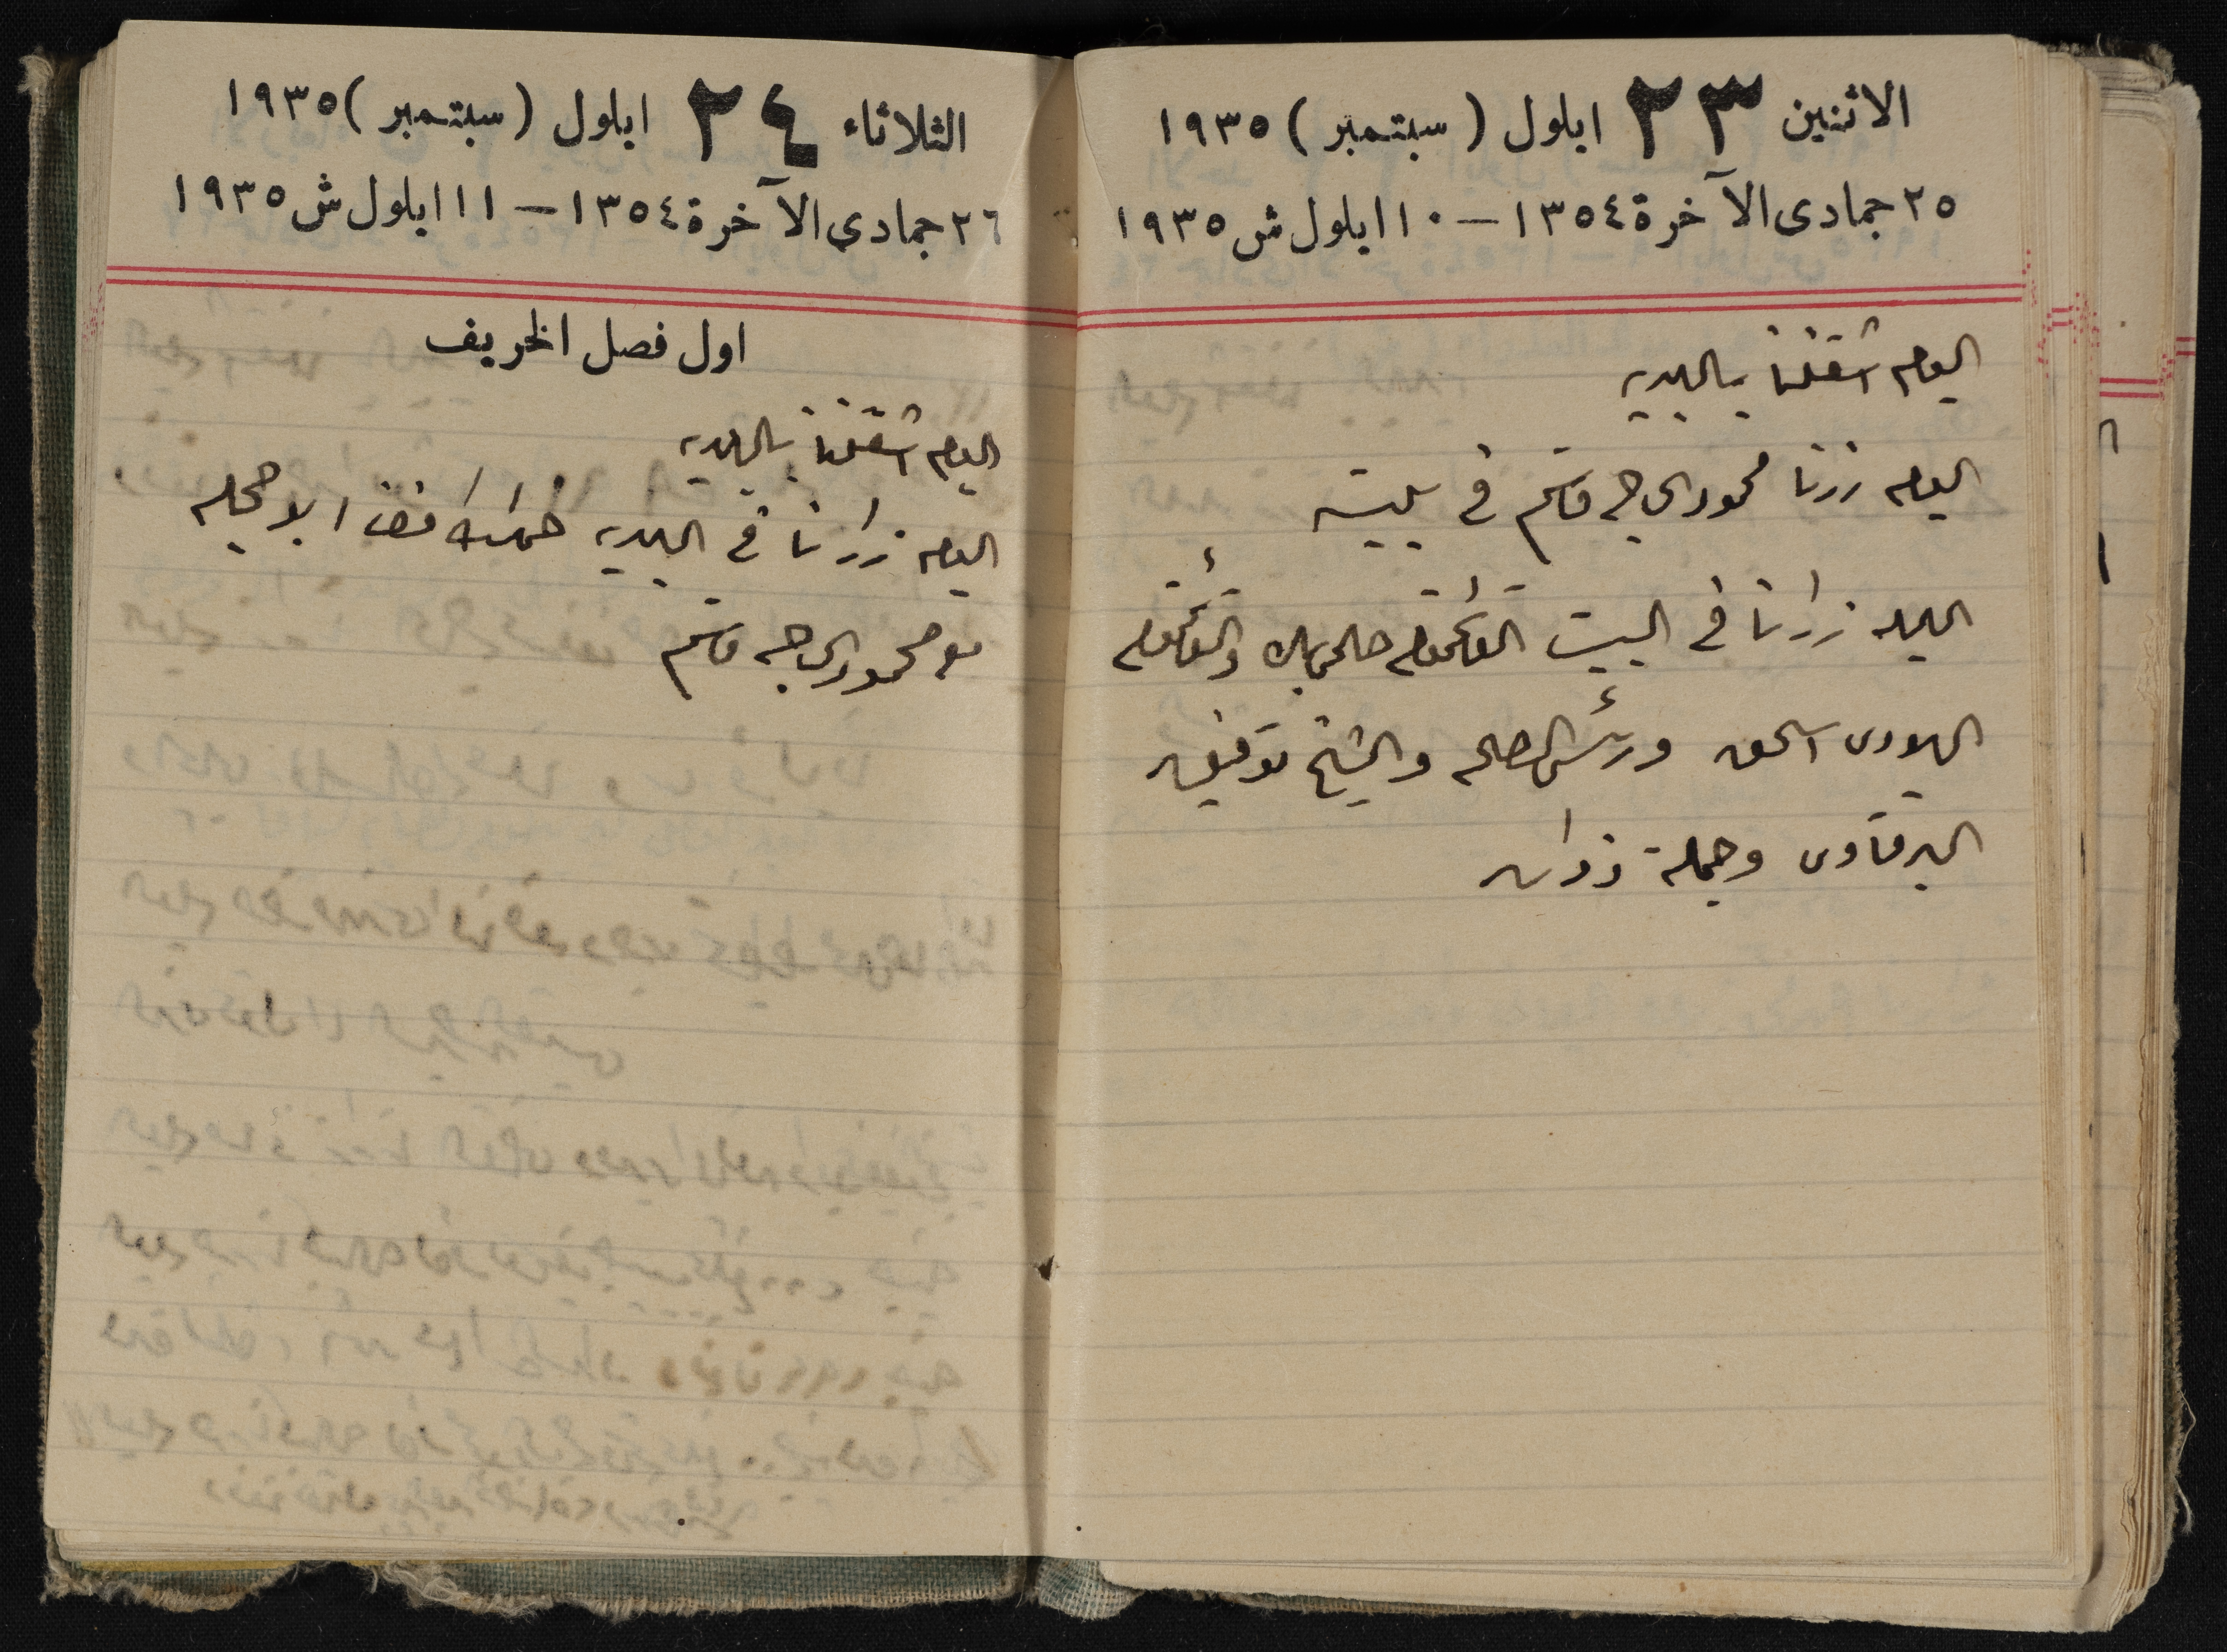 الاثنين ٢٣ ايلول (سبتمبر) ١٩٣٥
٢٥ جمادى الآخرة ١٣٥٤ – ١٠ ايلول ش ١٩٣٥
اليوم اشتغلنا بالبلديه
اليوم زرنا محمود الحاج قاسم في بيته
الليله زارنا في البيت القائمقام حلمي بك والقائمقام
اليهودى اسحق ورئيس الصلح والشيخ توفيق
البرقاوى وجملة ذوات
الثلاثاء ٢٤ ايلول (سبتمبر) ١٩٣٥
٢٦ جمادى الآخرة ١٣٥٤ – ١١ ايلول ش ١٩٣٥
اول فصل الخريف
اليوم اشتغلنا بالبلديه
اليوم زارنا في البلديه ابو حجله
محمود الحاج قاسم